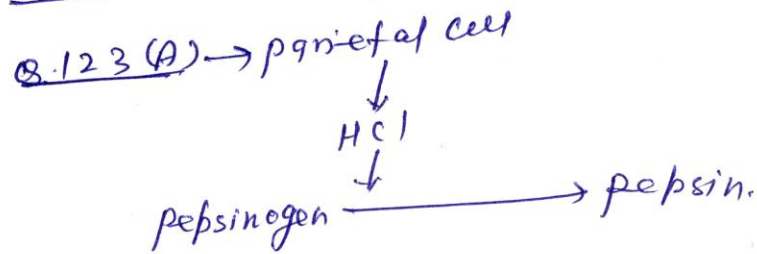 Q.123 (A) → parietal cell
↓
HCl
↓
pepsinogen → pepsin.